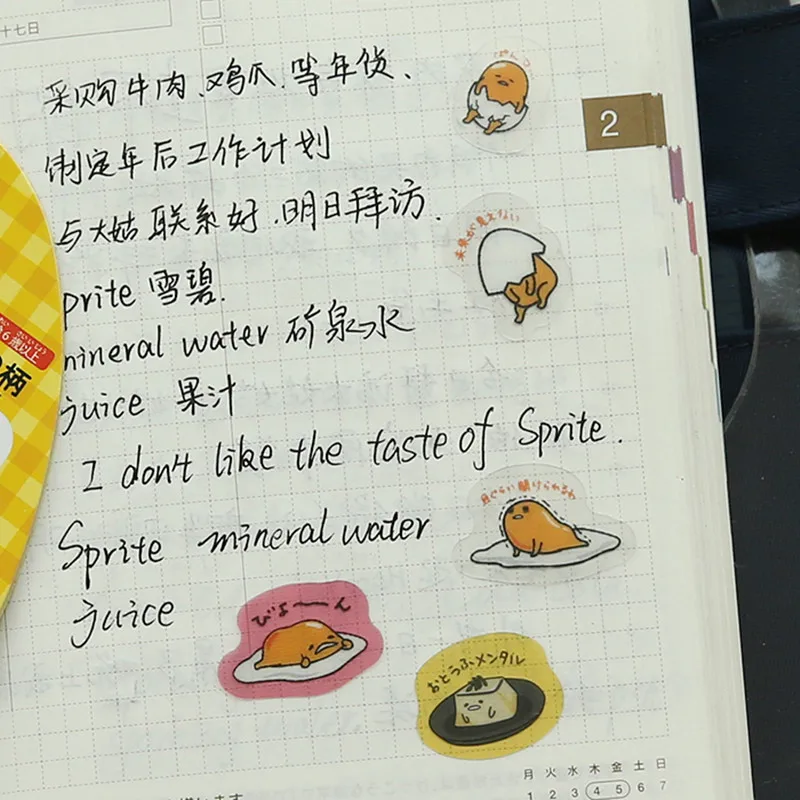 十七日
采购牛肉、鸡爪.等年货、
制定年后工作计划
与大姑联系好.明日拜访.
prite 雪碧.
mineral water 矿泉水
juice 果汁
I don't like the taste of Sprite.
Sprite mineral water
juice
2
未来が見えない
目ぐらい開けられるわ
びよーーん
おとうふメンタル
6歳以上
柄
月 火 水 木 金 土 日
1 2 3 4 5 6 7